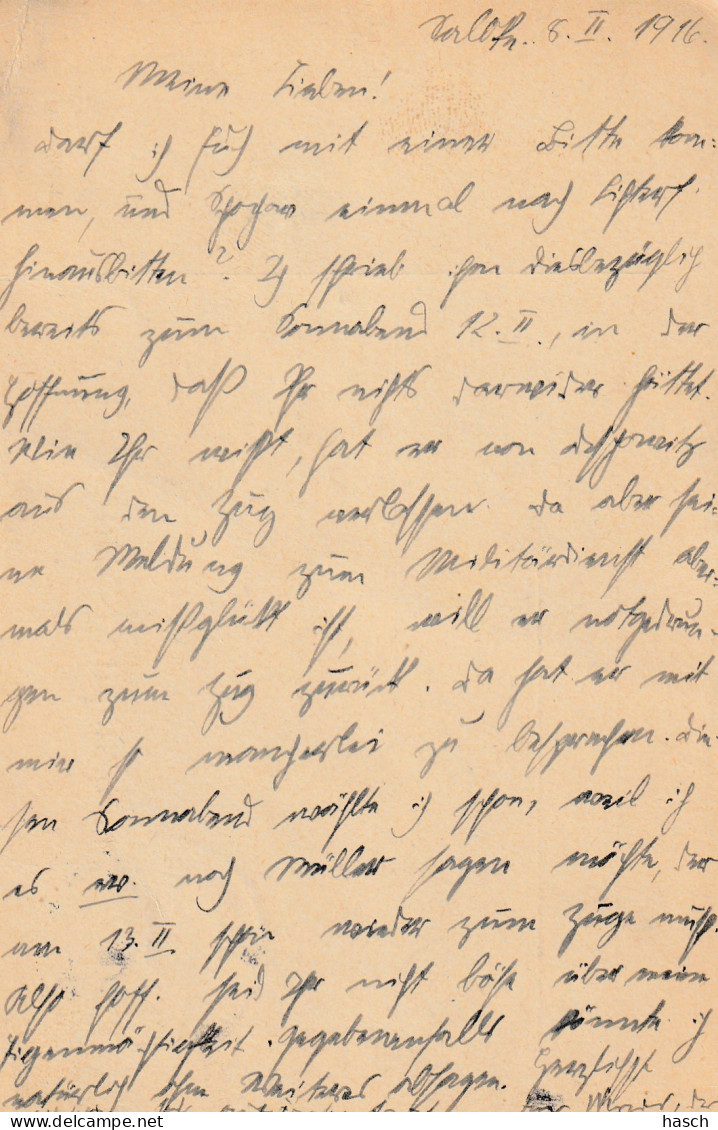 8. II. 1916.
Meine Lieben!
Darf ich Euch mit einer Bitte kom-
men, und einmal nach
hinausbitten? Ich schrieb ihm diesbezüglich
bereits zum Sonnabend 12. II., in der
Hoffnung, daß Ihr nichts darwider hättet.
Wie Ihr wißt, hat er von
aus den Zug verlassen. Da aber sei-
ne Meldung zum Militärdienst aber-
mals mißglückt ist, will er notgedrun-
gen zum Zug zurück. Da hat er mit
mir so mancherlei zu besprechen. Die-
sen Sonnabend wählte ich schon, weil ich
es ev. noch Müller sagen möchte, der
am 13. II schon wieder zum Zuge muß.
Also hoff. seid Ihr nicht böse über meine
Eigenmächtigkeit. Gegebenenfalls könnte ich
natürlich ohne Weiteres absagen. Herzlichst
hasch